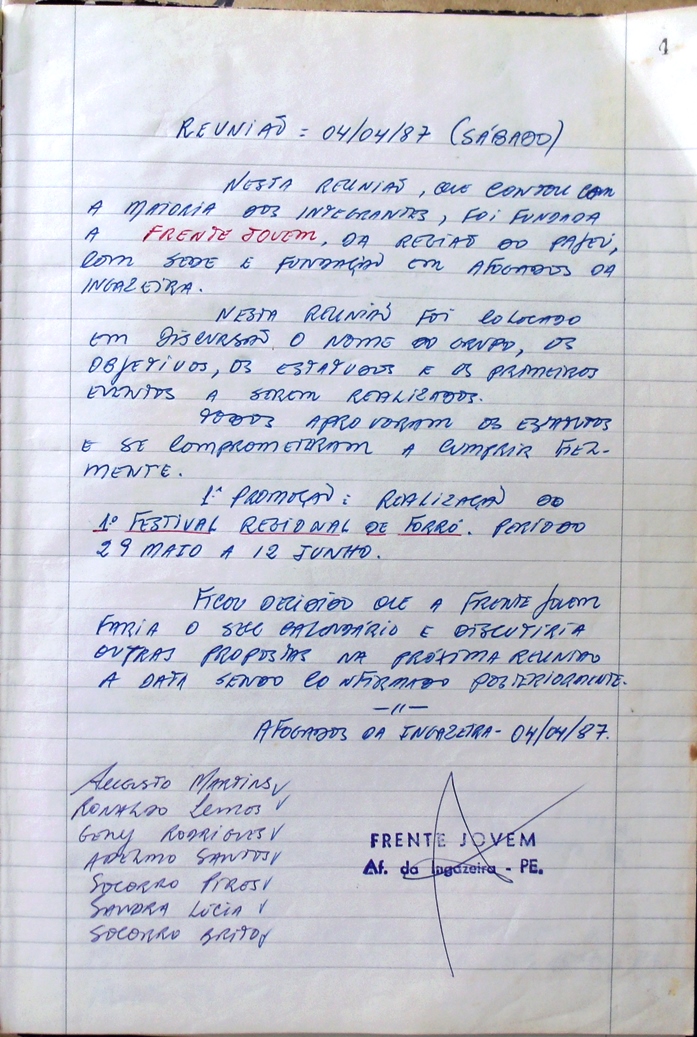 4
REUNIÃO = 04/04/87 (SÁBADO)
NESTA REUNIÃO, QUE CONTOU COM
A MAIORIA DOS INTEGRANTES, FOI FUNDADA
A FRENTE JOVEM, DA REGIÃO DO PAJEÚ,
COM SEDE E FUNDAÇÃO EM AFOGADOS DA
INGAZEIRA.
NESTA REUNIÃO FOI COLOCADO
EM DISCURSÃO O NOME DO GRUPO, OS
OBJETIVOS, OS ESTATUTOS E OS PRIMEIROS
EVENTOS A SEREM REALIZADOS.
TODOS APROVARAM OS ESTATUTOS
E SE COMPROMETERAM A CUMPRIR FIEL-
MENTE.
1ª PROMOÇÃO: REALIZAÇÃO DO
1º FESTIVAL REGIONAL DE FORRÓ. PERÍODO
29 MAIO A 12 JUNHO.
FICOU DECIDIDO QUE A FRENTE JOVEM
FARIA O SEU CALENDÁRIO E DISCUTIRIA
OUTRAS PROPOSTAS NA PRÓXIMA REUNIÃO
A DATA SENDO CONFIRMADO POSTERIORMENTE.
—"—
AFOGADOS DA INGAZEIRA - 04/04/87.
AUGUSTO MARTINS
RONALDO LEMOS
GENY RODRIGUES
ADELMO SANTOS
SOCORRO PIRES
SANDRA LÚCIA
SOCORRO BRITO
FRENTE JOVEM
Af. da Ingazeira - PE.